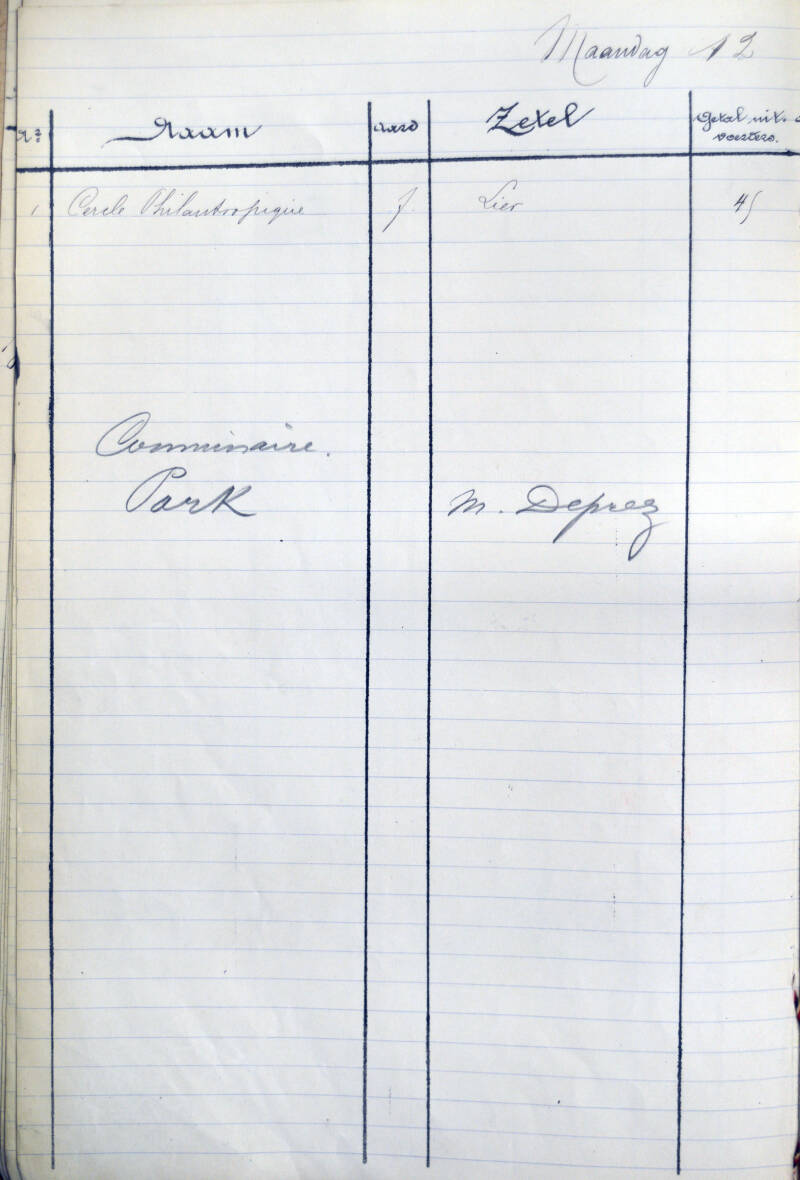 Maandag 12
Nr Naam aard Zetel Getal uit-
voerders.
1 Cercle Philantropique f. Lier 45
Commissaire.
Park M. Deprez